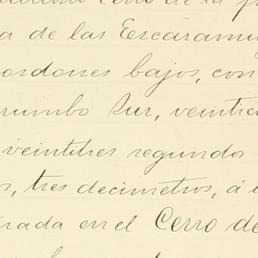 Cerro de la
a de las Escaramu
ordones bajos, con
rumbo Sur, veintic
veintitres segundos
os, tres decimetros, á
rada en el Cerro de